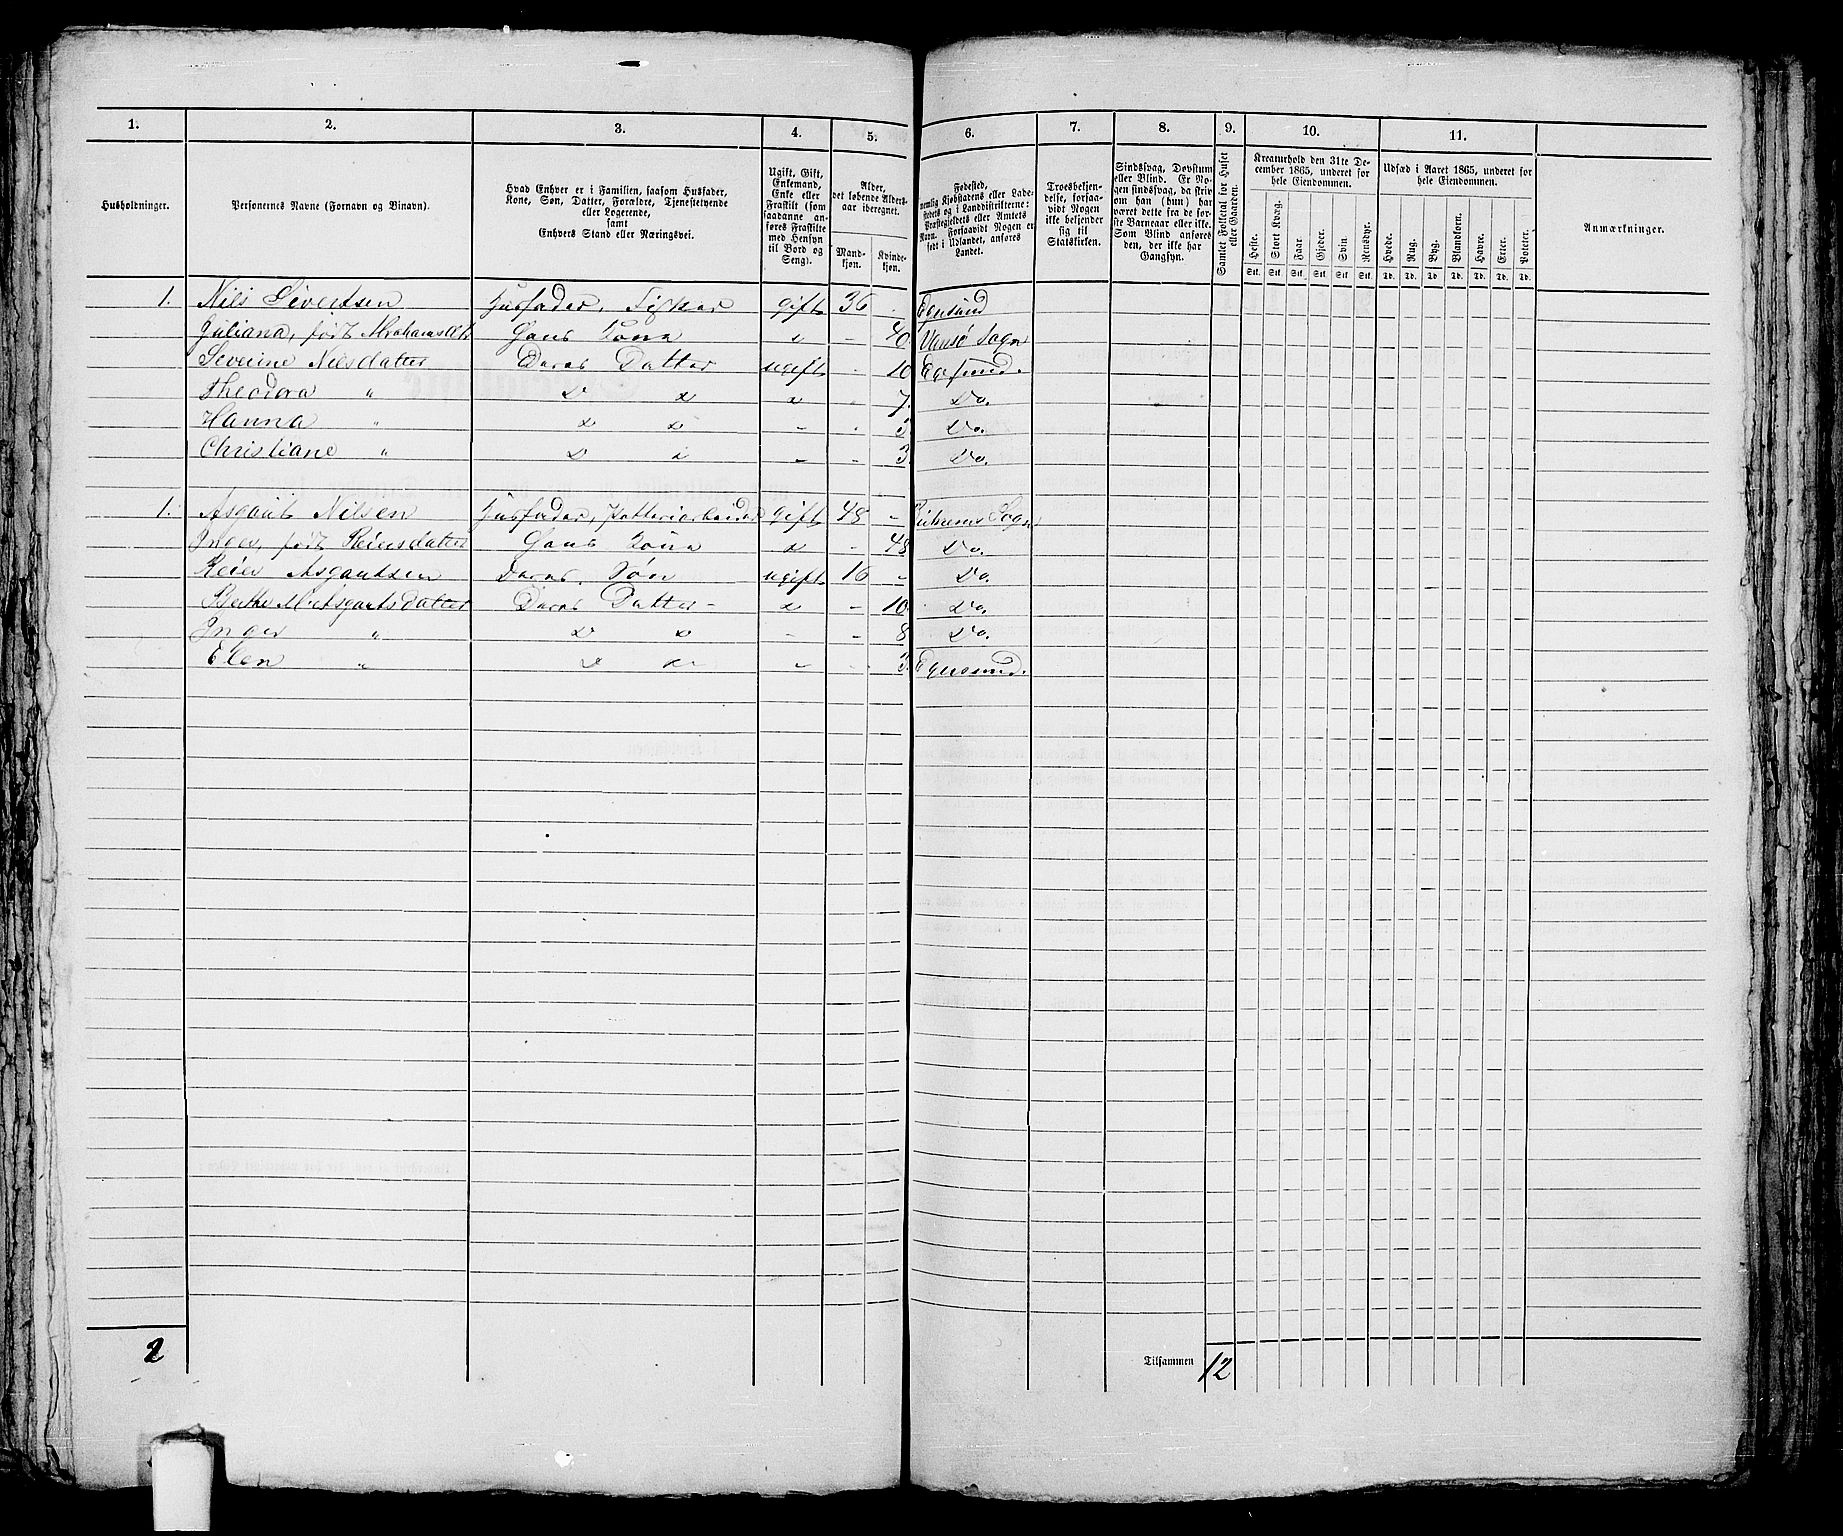 1. 2. 3. 4. 5. 6. 7. 8. 9. 10. 11.
Husholdninger.
Personernes Navne (Fornavn og Binavn).
Hvad Enhver er i Familien, saasom Husfader,
Kone, Søn, Datter, Forældre, Tjenestetyende
eller Logerende,
samt
Enhvers Stand eller Næringsvei.
Ugift, Gift,
Enkemand,
Enke eller
Fraskilt (som
saadanne an-
føres Fraskilte
med Hensyn
til Bord og
Seng).
Alder,
det løbende Alders-
aar iberegnet.
Mand-
kjøn.
Kvinde-
kjøn.
Fødested,
nemlig Kjøbstadens eller Lade-
stedets og i Landdistrikterne:
Præstegjeldets eller Amtets
Navn. Forsaavidt Nogen er
født i Udlandet, anføres
Landet.
Troesbekjen-
delse, forsaa-
vidt Nogen
ikke bekjender
sig til
Statskirken.
Sindssvag, Døvstum
eller Blind. Er No-
gen sindssvag, da skriv
om han (hun) har
været dette fra de før-
ste Barneaar eller ikke.
Som Blind anføres
den, der ikke har
Gangsyn.
Samlet Folketal for Huset
eller Gaarden.
Kreaturhold den 31te De-
cember 1865, underet for
hele Eiendommen.
Heste. Stort Kvæg. Faar. Gjeder. Svin. Rensdyr.
Stk. Stk. Stk. Stk. Stk. Stk.
Udsæd i Aaret 1865, underet for
hele Eiendommen.
Hvede. Rug. Byg. Blandkorn. Havre. Erter. Poteter.
Td. Td. Td. Td. Td. Td. Td.
Anmærkninger.
1. Nils Sivertsen Husfader, Fisker gift 36 - Egersund
Juliana, født Abrahamsdtr Hans Kone " - 40 Vansø Sogn
Severine Nilsdatter Deres Datter ugift - 10 Egersund.
Theodora " D " " - 7. Do.
Hanna " " " - - 5 Do.
Christiane " D " - - 3 Do.
1. Asgaut Nilsen Husfader, Potteriarbeider gift 48 - Sogn
Inger, født Reiersdatter Hans Kone " - 48 Do.
Reier Asgautsen Deres Søn ugift 16 - Do.
Berthe M. Asgautsdatter Deres Datter - " - 10 Do.
Inger " D " - - 8 Do.
Elen " " " - - 3. Egersund.
2
Tilsammen 12